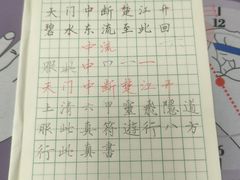 天门中断楚江开
碧水东流至此回
中流
中四一一
天门中断楚江开
上清六甲靈飛隱道
服此真符遊行八方
行此真書
12